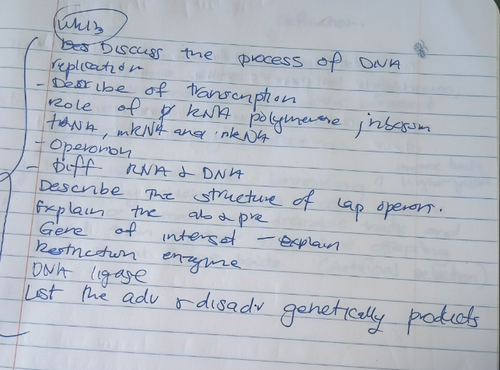 Discuss the process of DNA
replication
- Describe of transcription
Role of RNA polymerase,
tRNA, mRNA and
- Operon
- Diff RNA & DNA
Describe the structure of Lap operon.
Explain the
Gene of interest - explain
Restriction enzyme
DNA ligase
List the adv & disadv genetically products